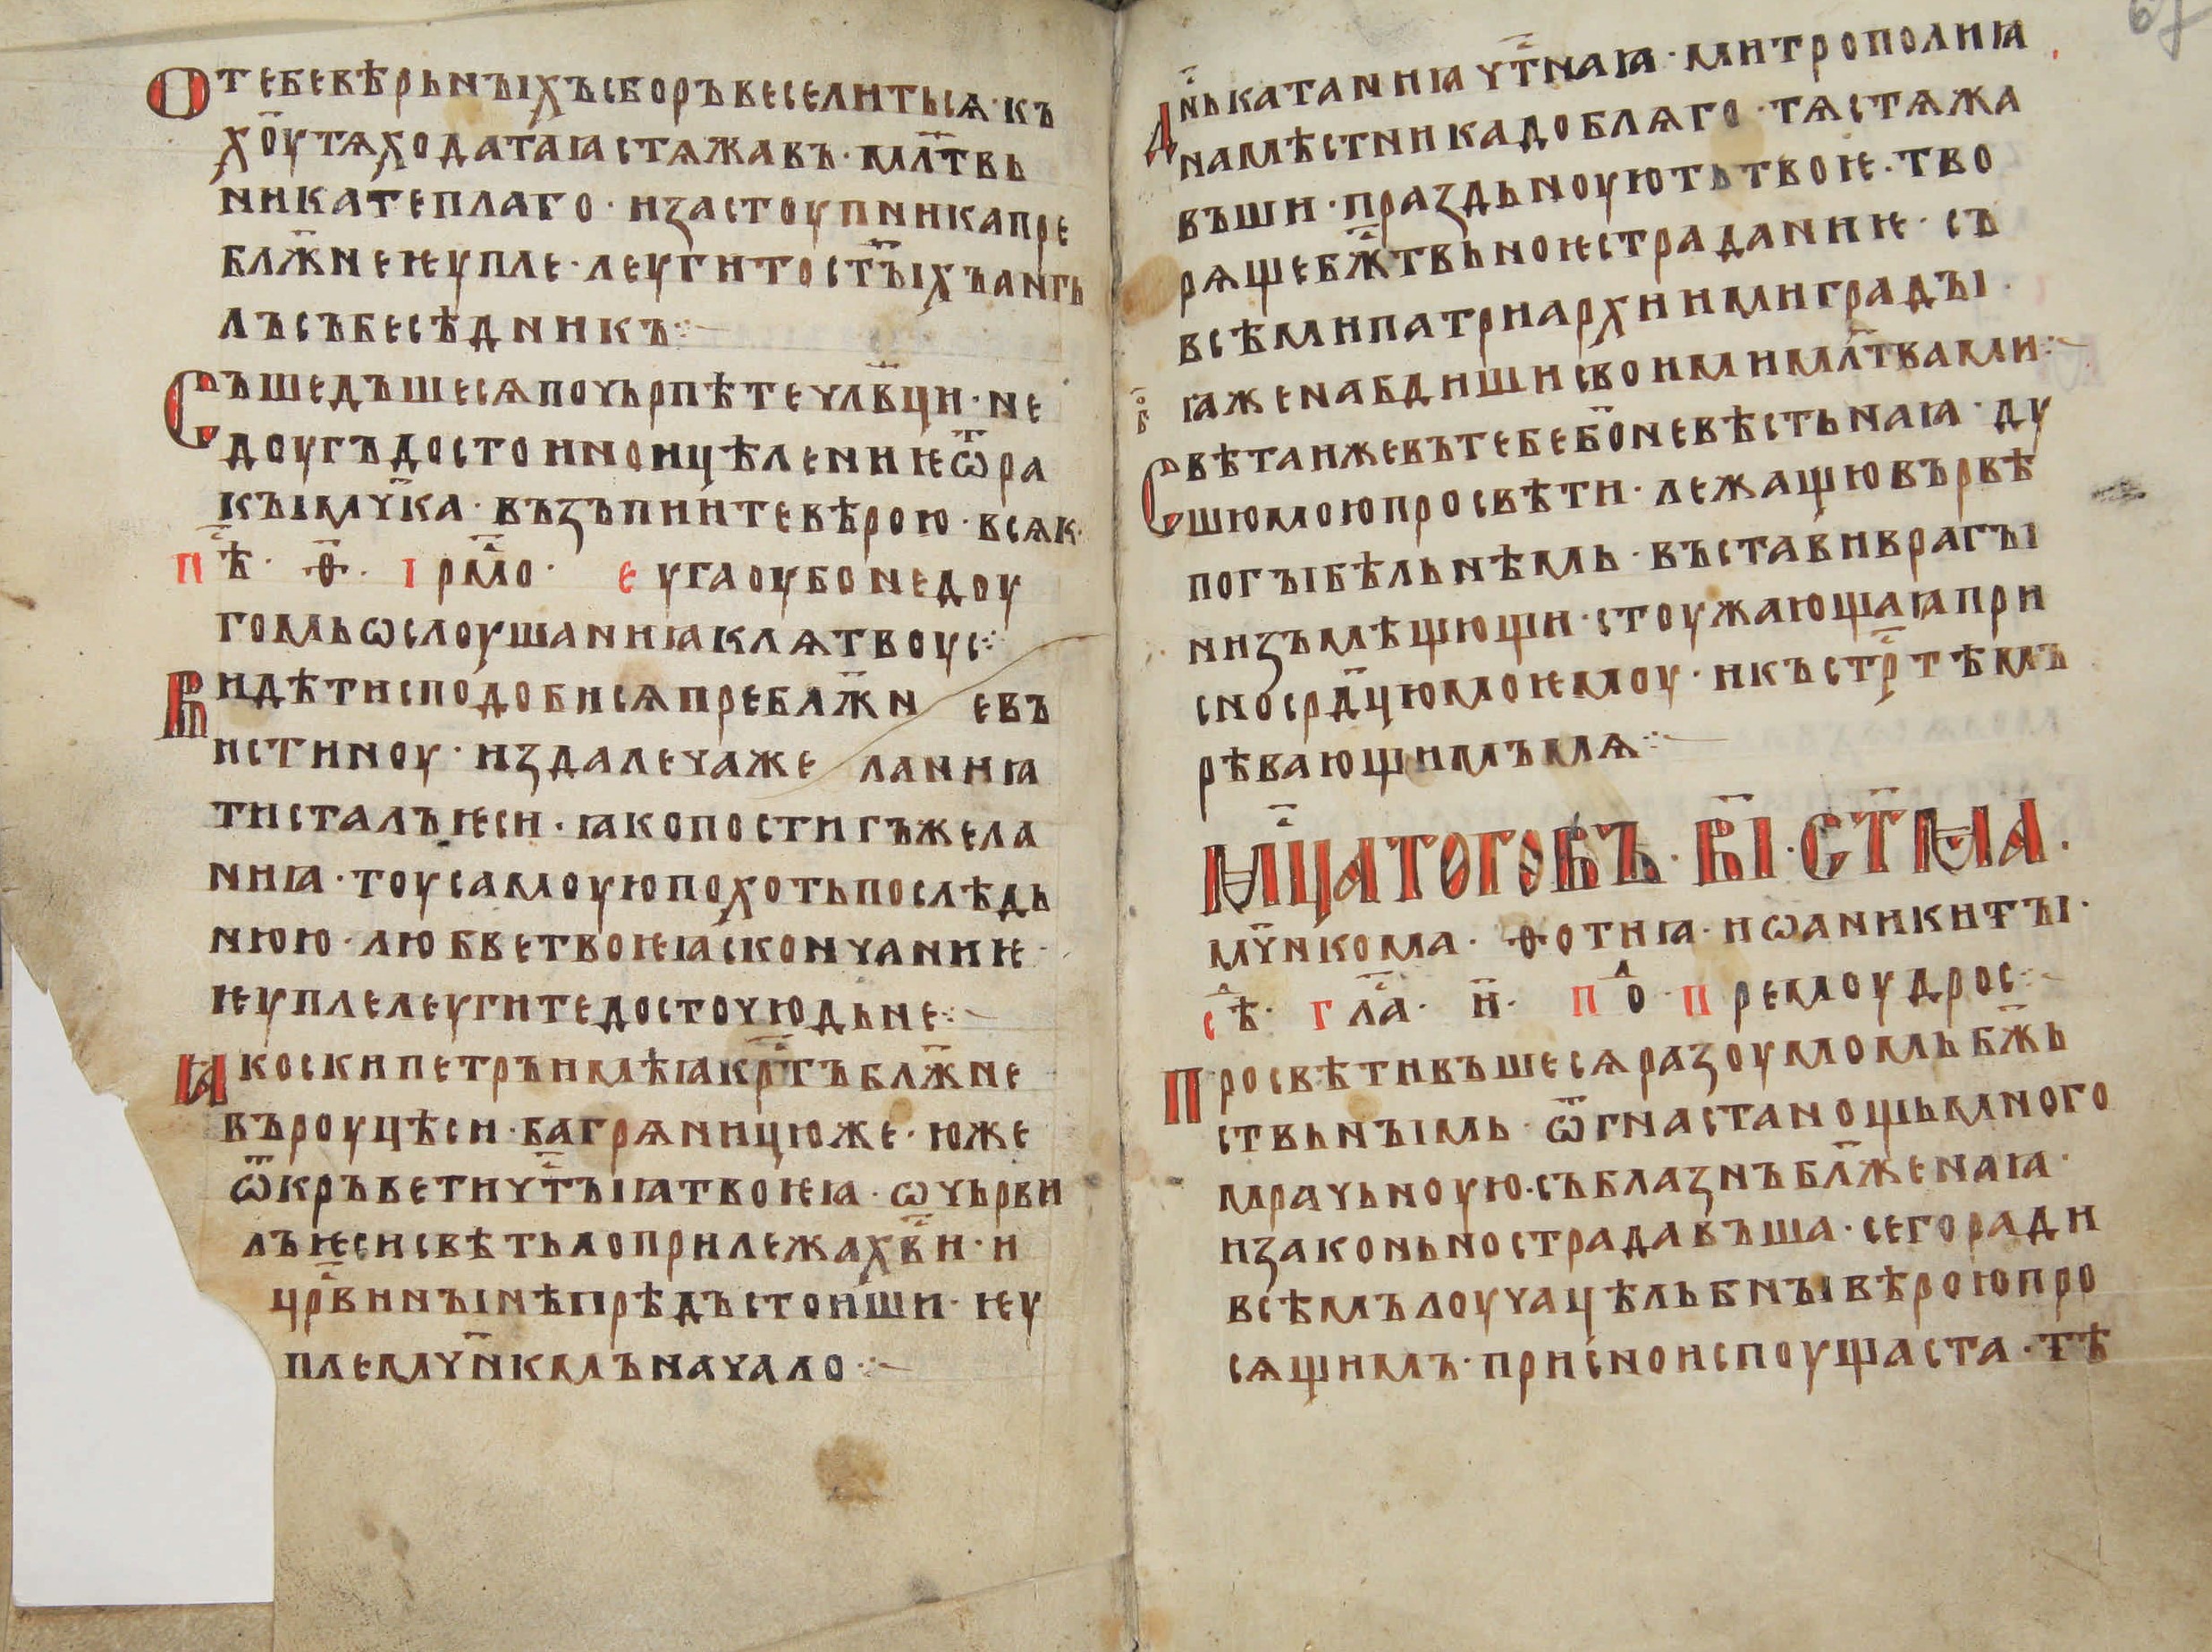 Отебевѣрьнꙑхъсборъвеселитьсѧ·къ
хо҃утѧходатаꙗстѧжавъ·мл҃твь
никатеплаго·изастоупникапре
блж҃неѥупле·леугитост҃ꙑхъанг҃ь
лъсъбесѣдникъ⁘
Съшедъшесѧпочьрпѣтечлв҃ци·не
доугъдостоиноицѣлениѥѿра
кꙑмч҃ка·възъпиитевѣрою·всѧк·
пѣ҃·ѳ҃·ірмо҃·еугаоубонедоу
гомьѡслоушаниꙗклѧтвоус⁘
Видѣтисподобисѧпреблж҃невъ
истиноу·издалечажеланиꙗ
тисталъѥси·ꙗкопостигъжела
ниꙗ·тоусамоуюпохотьпослѣдь
нюю·любветвоѥꙗсконьчаниѥ·
ѥуплелеугитедосточюдьне⁘
Ꙗкоскипетръимѣꙗкрс҃тъблж҃не
въроуцѣси·багрѧницюже·юже
ѿкръветичс҃тꙑꙗтвоѥꙗ·ѡчьрви
лъѥсисвѣтьлоприлежахв҃и·и
црв҃инꙑнѣпрѣдъстоиши·ѥу
племч҃нкмъначало⁘
67
Дн҃ькатаниꙗчс҃тнаꙗ·митрополиꙗ
намѣстникадоблѧго·тѧстѧжа
въши·праздьноуютьтвоѥ·тво
рѧщебж҃твьноѥстраданиѥ·съ
всѣмипатриархиимиградꙑ·
ꙗженабдишисвоимимл҃твами⁘
бо҃
Свѣтаижевътебебо҃невѣстьнаꙗ·ду
шюмоюпросвѣти·лежащювървѣ
погꙑбѣльнѣмь·въставивраги
низъмѣщющи·стоужающаꙗпри
сносрдц҃юмоѥмоу·икъстрс҃тѣмъ
рѣвающимъмѧ⁘
Мц҃атоговъ·ві҃·ст҃маꙗ·
мч҃нкома·ѳотиꙗ·иѡаникитꙑ·
сѣ҃·гла҃·и҃·по҃·премоудрос⁘
Просвѣтивъшесѧразоумомьбж҃ь
ствьнꙑмь·ѿгнастанощьмного
мрачьноую·съблазнъбл҃женаꙗ·
изаконьнострадавъша·сегоради
всѣмълоучацѣльбнꙑвѣроюпро
сѧщимъ·присноиспоущаста·тѣ